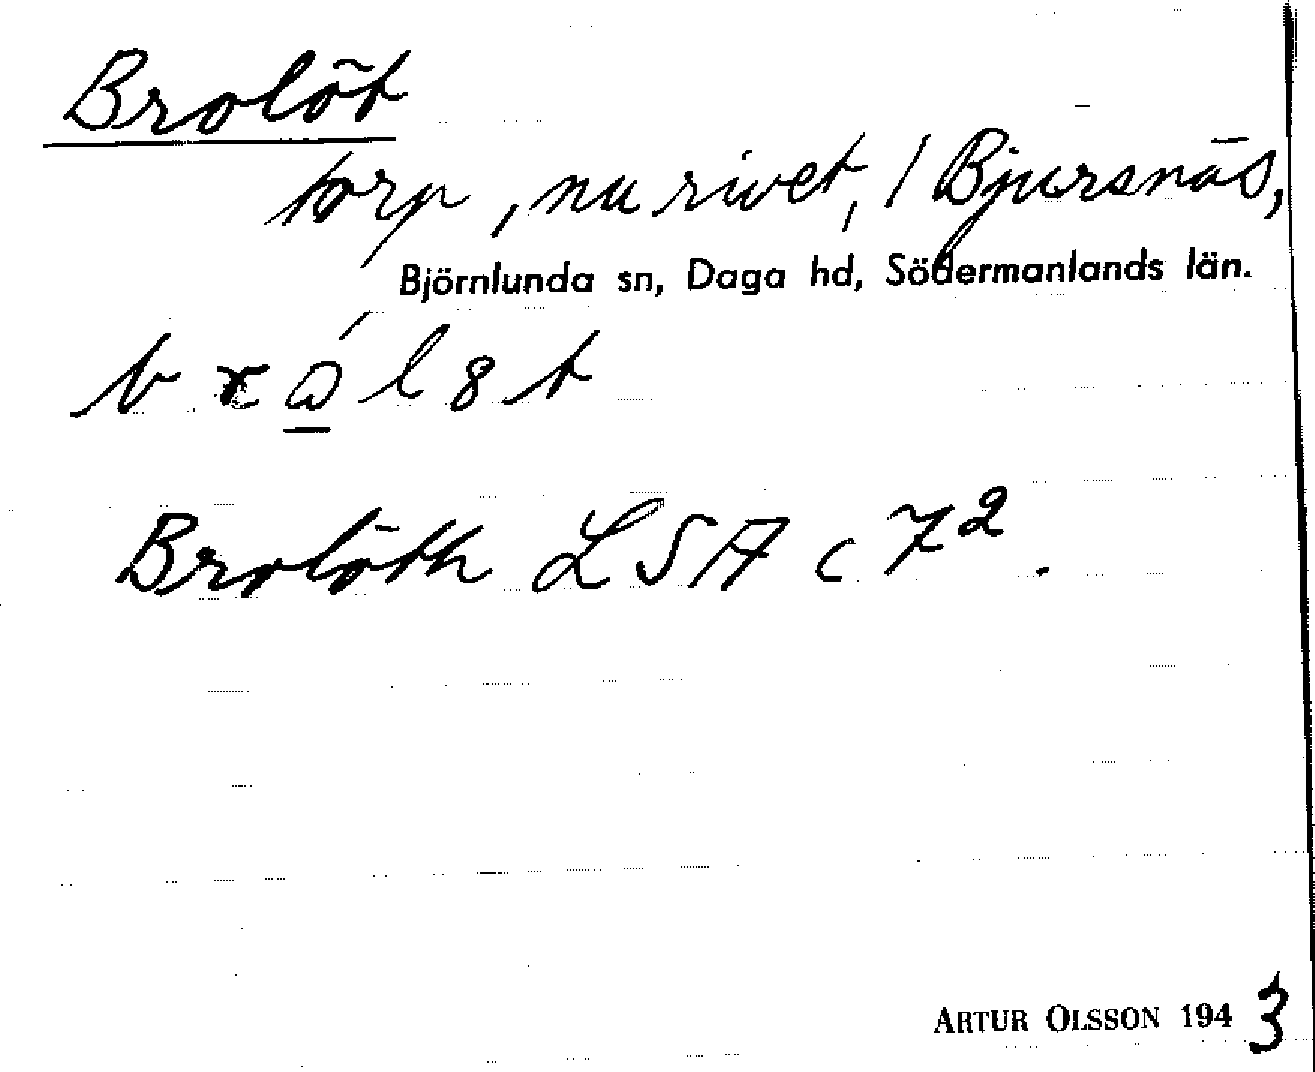 Brolöt
torp, nu rivet, / Bjursnäs,
Björnlunda sn, Daga hd, Södermanlands län.
Brolöth LSA c 7².
ARTUR OLSSON 1943